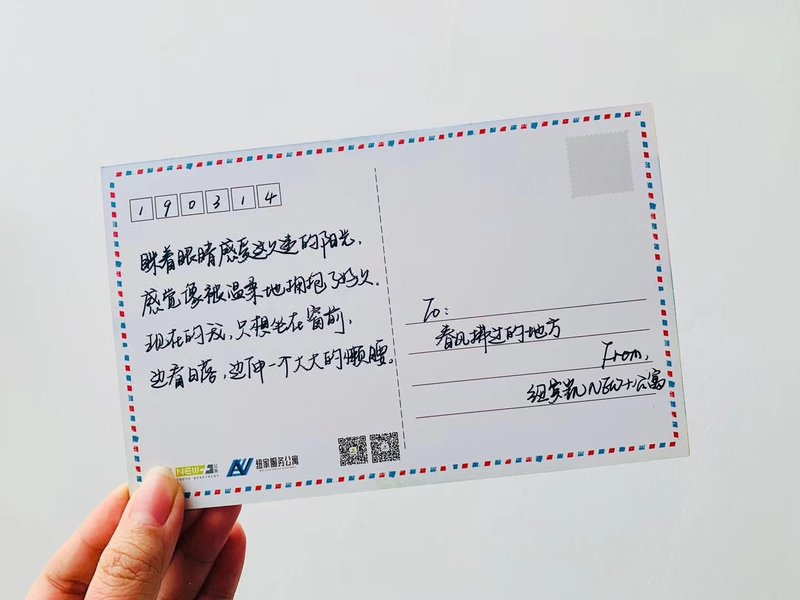 190314
眯着眼睛感受这久违的阳光,
感觉像被温柔地拥抱了好久.
现在的我,只想坐在窗前,
边看日落,边伸一个大大的懒腰。
To:
春风拂过的地方
From,
纽宾凯NEW+公寓
NEW+
纽家服务公寓